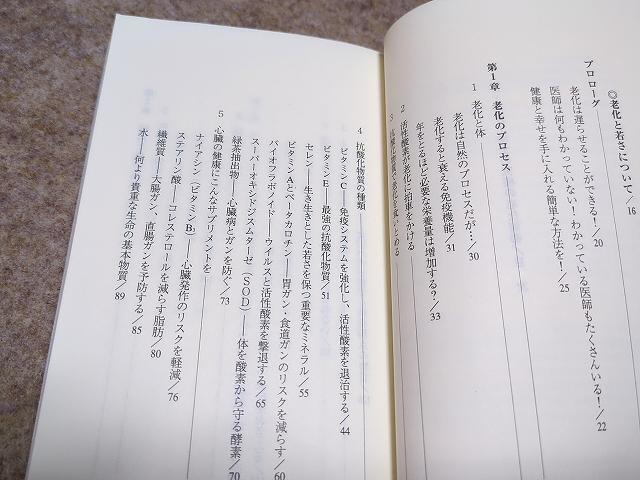 ◎老化と若さについて／16
プロローグ
老化は遅らせることができる！／20
医師は何もわかっていない！わかっている医師もたくさんいる！／22
健康と幸せを手に入れる簡単な方法を！／25
第1章 老化のプロセス
1 老化と体
老化は自然のプロセスだが…／30
老化すると衰える免疫機能／31
年をとるほど必要な栄養量は増加する？／33
2 活性酸素が老化に拍車をかける
3 抗酸化物質で老化を食いとめる
4 抗酸化物質の種類
ビタミンC——免疫システムを強化し、活性酸素を退治する／44
ビタミンE——最強の抗酸化物質／51
セレン——生き生きとした若さを保つ重要なミネラル／55
ビタミンAとベータカロチン——胃ガン・食道ガンのリスクを減らす／60
バイオフラボノイド——ウイルスと活性酸素を撃退する／65
スーパーオキシドジスムターゼ（SOD）——体を酸素から守る酵素／70
緑茶抽出物——心臓病とガンを防ぐ／73
5 心臓の健康にこんなサプリメントを
ナイアシン（ビタミンB₃）——心臓発作のリスクを軽減／76
ステアリン酸——コレステロールを減らす脂肪／80
繊維質——大腸ガン、直腸ガンを予防する／85
水——何より貴重な生命の基本物質／89